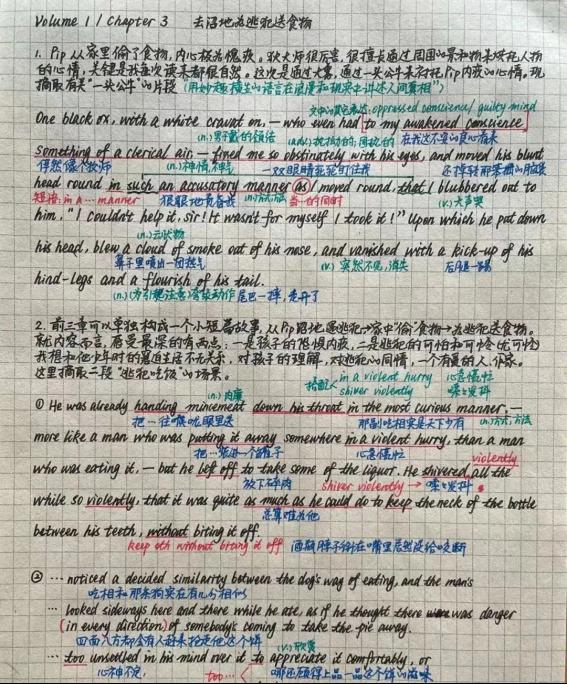 Volume 1 / Chapter 3 去沼地为逃犯送食物
1. Pip从家里偷了食物,内心极为愧疚。狄大师很厉害,很擅长通过周围的景和物来烘托人物
的心情,关键是我每次读来都很自然。这次是通过大雾,通过一头公牛来衬托Pip内疚的心情。现
摘取有关"一头公牛"的片段(用妙趣横生的语言在浪漫和现实中讲述人间真相")
文中的其它表达: oppressed conscience / guilty mind
One black ox, with a white cravat on, — who even had to my awakened conscience
(n.) 男士戴的领结 在我这不安的良心看来
something of a clerical air — fixed me so obstinately with his eyes, and moved his blunt
俨然像个牧师 (n.) 神情,神气 一双眼睛死死盯住我
head round in such an accusatory manner as I moved round, that I blubbered out to
短接: in a … manner 狠狠地责备我 (n.) 方式,方法 当…的同时 (v.) 大声哭
him, "I couldn't help it, sir! It wasn't for myself I took it!" Upon which he put down
(n.) 云状物
his head, blew a cloud of smoke out of his nose, and vanished with a kick-up of his
鼻子里喷出一团热气 (v.) 突然不见,消失 后腿一踢
hind-legs and a flourish of his tail.
(n.) (为引起注意)夸张动作 尾巴一摔,走开了
2. 前三章可以单独构成一个小短篇故事,从Pip路地遇逃犯→家中"偷"食物→为逃犯送食物。
就内容而言,感受最深的有两点:一是孩子的恐惧内疚,二是逃犯的可怕和可怜(尤可怜)
我想和他少年时的嘉庭生活不无关系,对孩子的理解,对逃犯的同情,一个有趣的人、作家。
这里摘取二段"逃犯吃饭"的场景。
in a violent hurry 心急慌忙
shiver violently 嗦嗦发抖
(n.) 肉糜
① He was already handing mincemeat down his throat in the most curious manner, —
把…往喉咙里送 那副吃相实是天下少有 (n.) 方式,方法
more like a man who was putting it away somewhere in a violent hurry, than a man
心急慌忙 violently
who was eating it, — but he left off to take some of the liquor. He shivered all the
放下碎肉 shiver violently → 嗦嗦发抖
while so violently, that it was quite as much as he could do to keep the neck of the bottle
总算难为他
between his teeth, without biting it off.
keep sth without biting it off 酒瓶脖子衔在嘴里居然没给咬断
② … noticed a decided similarity between the dog's way of eating, and the man's
吃相和那条狗实在有几分相似
… looked sideways here and there while he ate, as if he thought there was danger
(in every direction) of somebody's coming to take the pie away.
四面八方都会有人赶来抢走他这个饼
(v.) 欣赏
… too unsettled in his mind over it to appreciate it comfortably, or
心神不定, too… 哪还顾得上品一品这个饼的滋味